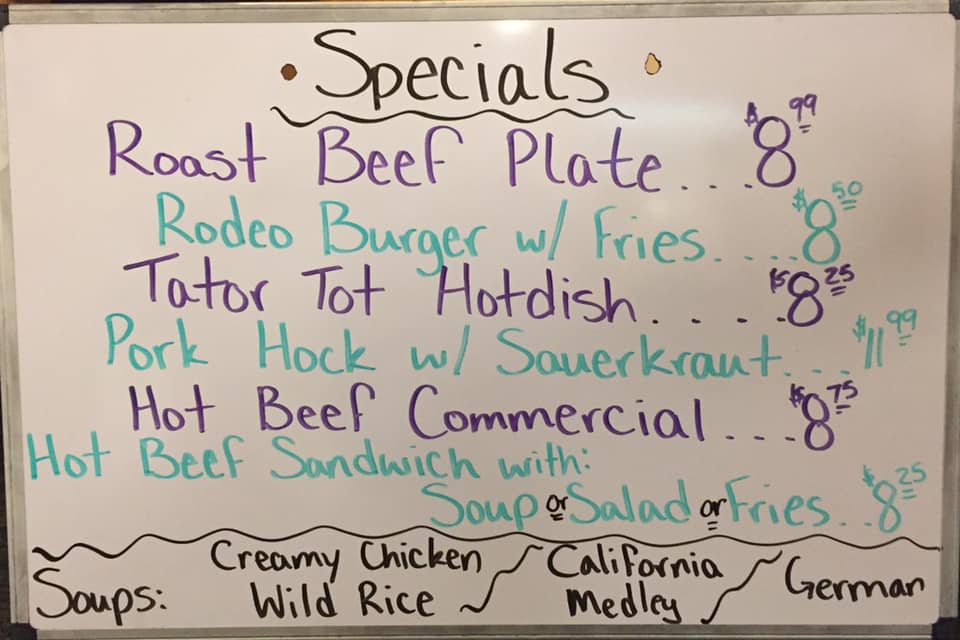 Specials
Roast Beef Plate....$8.99
Rodeo Burger w/ Fries.....$8.50
Tator Tot Hotdish.....$8.25
Pork Hock w/ Sauerkraut....$11.99
Hot Beef Commercial....$8.75
Hot Beef Sandwich with:
Soup or Salad or Fries...$8.25
Soups: Creamy Chicken Wild Rice / California Medley / German